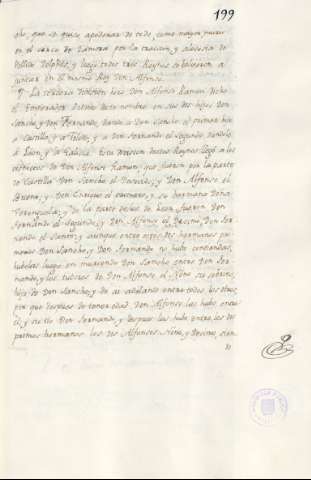 199
do, que se quiso apoderar de todo, como mayor, murio
en el cerco de Zamora por la traicion, y alevosia de
Vellido Dolfos, y luego todos tres Reynos se bolvieron a
juntar en el mismo Rey Don Alfonso.
La tercera division hizo Don Alfonso Ramon dicho
el Emperador deste nombre en sus dos hijos Don
Sancho, y Don Fernando, dando a Don Sancho el primer hijo
a Castilla, y a Toledo, y a Don Fernando el Segundo dandole
a Leon, y a Galicia. Esta division destos Reynos llegó a los
visnietos de Don Alfonso Ramon, que fueron por la parte
de Castilla Don Sancho el Deseado, y Don Alfonso el
Bueno, y Don Enrique el su hermano, y su hermana Doña
Verenguela; y de la parte de los de Leon fueron Don
Fernando el Segundo, y Don Alfonso el Decimo, Don Fer-
nando el Santo, y aunque entre estos dos hermanos pri-
meros Don Sancho, y Don Fernando no hubo contiendas,
hubolas luego en muriendo Don Sancho entre Don Fer-
nando, y los tutores de Don Alfonso el Nono su sobrino,
hijo de Don Sancho, y de ai adelante entre todos los otros,
por que despues de tener edad Don Alfonso las hubo entre
él, y su tio Don Fernando, y despues las hubo entre los dos
primos hermanos los dos Alfonsos, Nono, y Decimo, sien